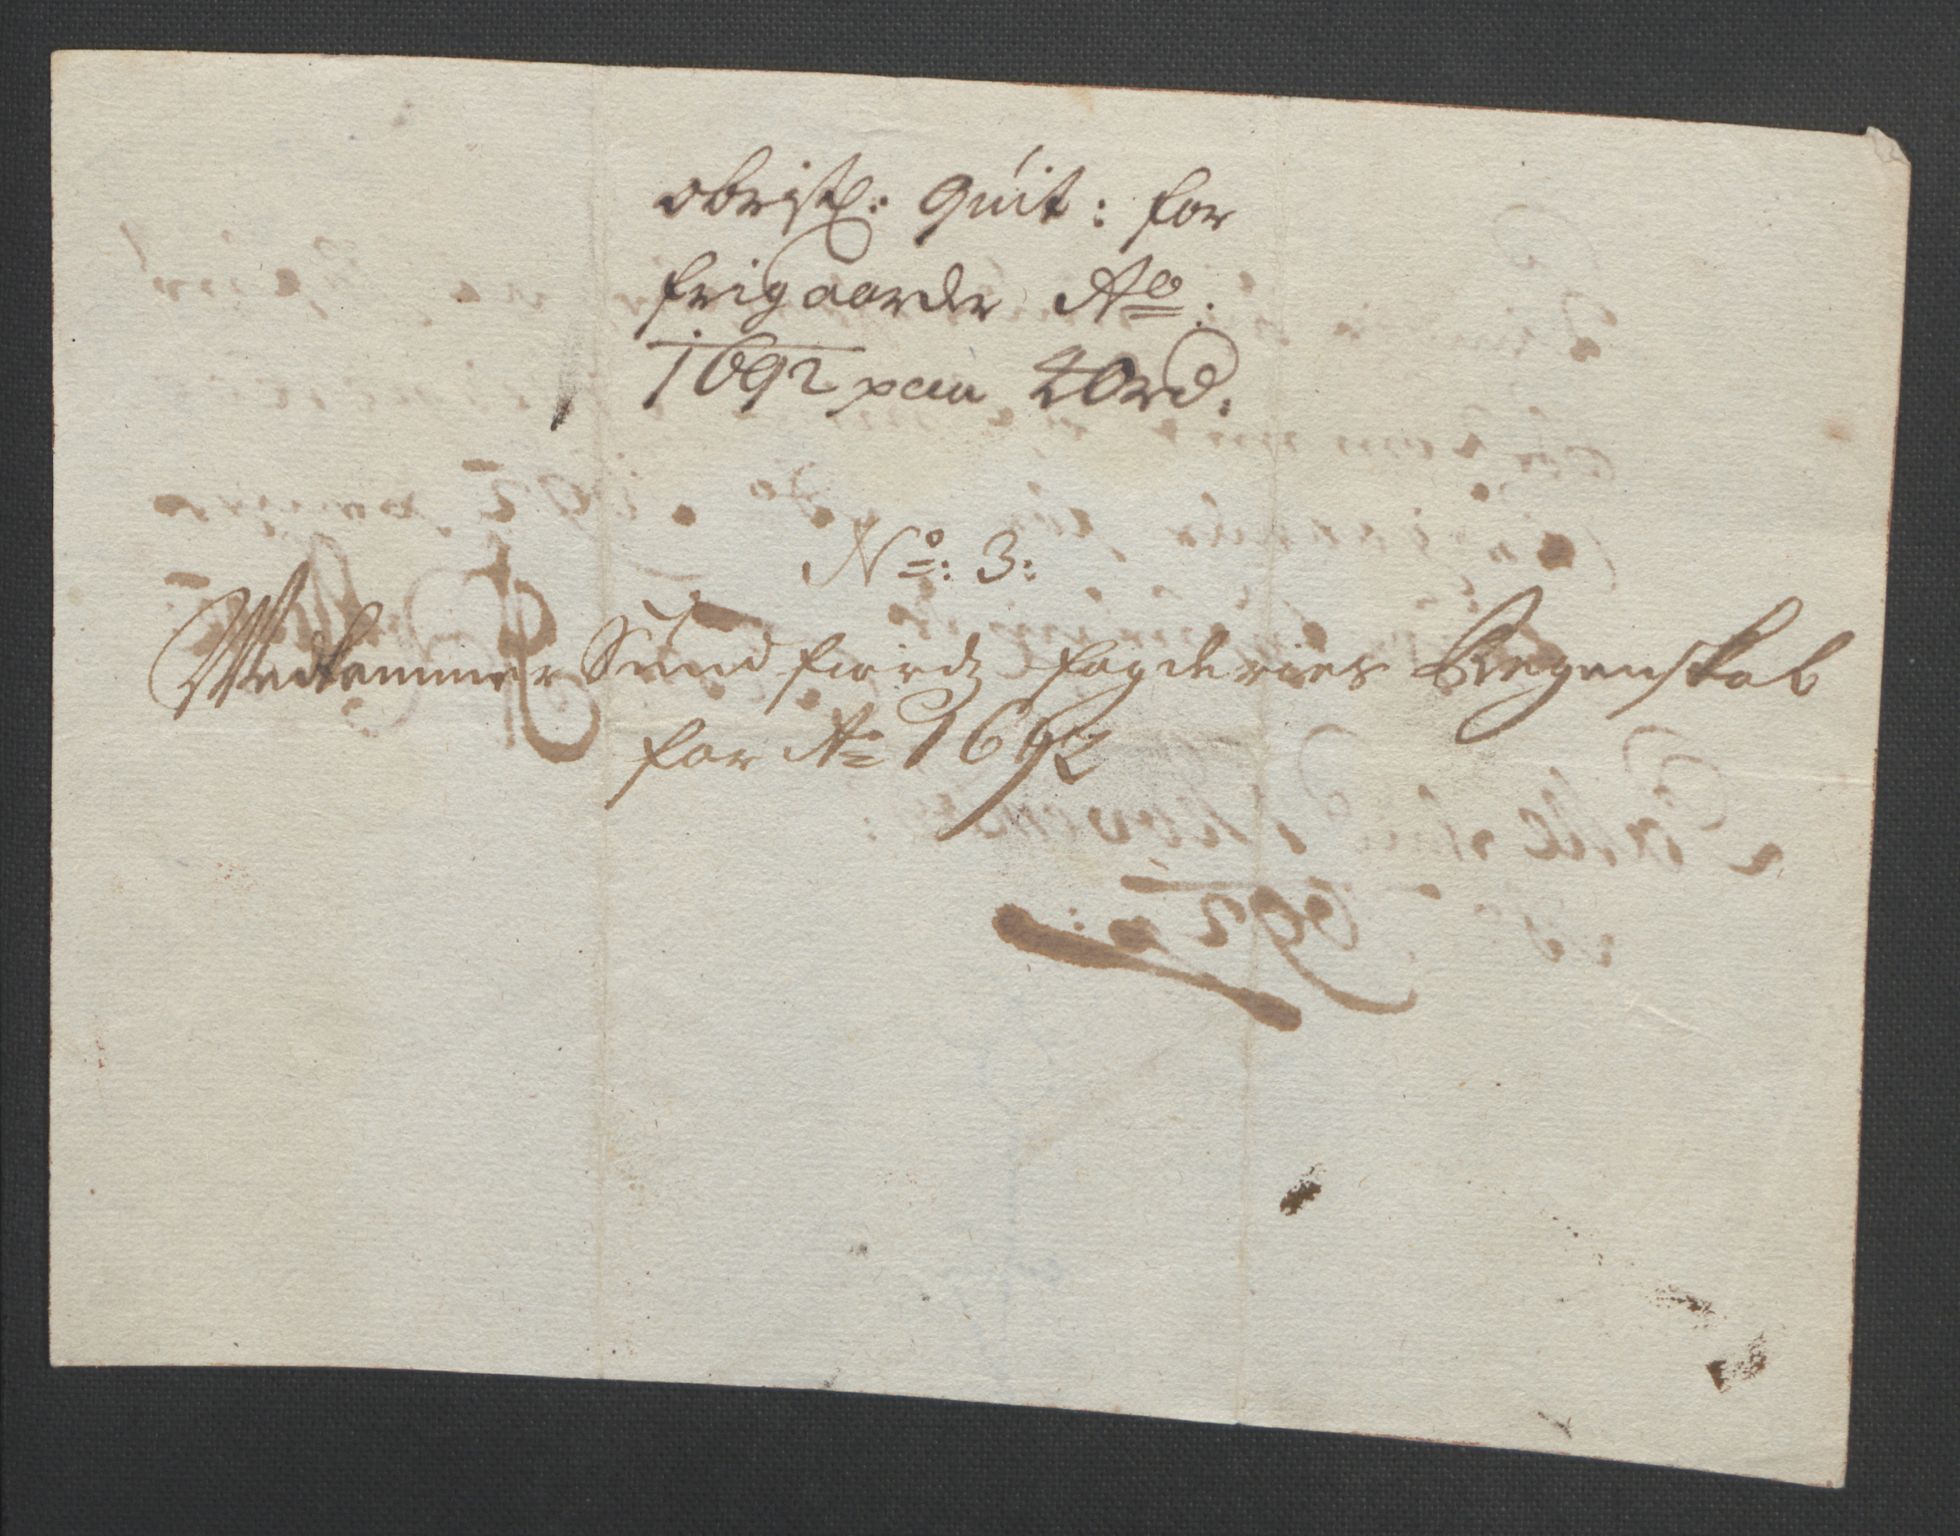 obristl: Quit: for
frigaarde Ao:
1692 paa 40 rd.
No: 3:
Vedkommer Sundfiordz fogderies Regenskab
for Ao 1692